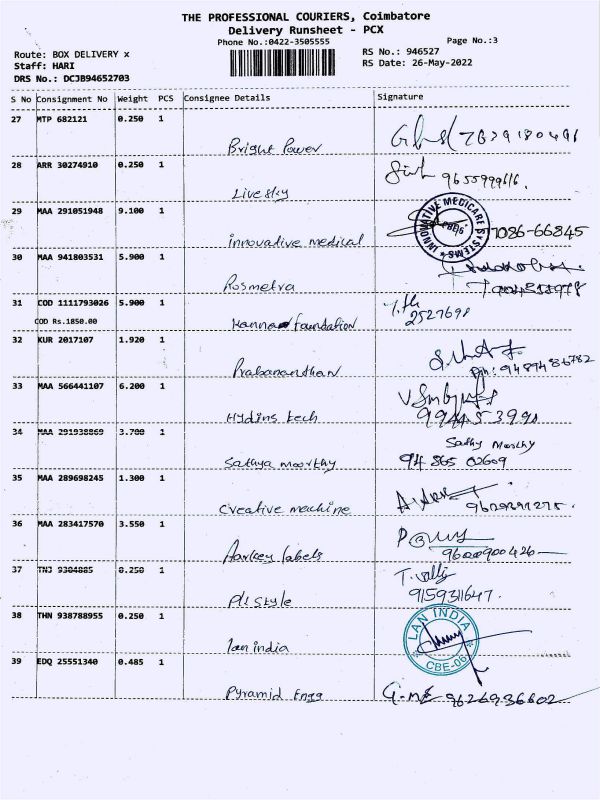 THE PROFESSIONAL COURIERS, Coimbatore
Delivery Runsheet - PCX
Phone No.:0422-3505555 Page No.:3
Route: BOX DELIVERY x RS No.: 946527
Staff: HARI RS Date: 26-May-2022
DRS No.: DCJB94652703
S No Consignment No Weight PCS Consignee Details Signature
27 MTP 682121 0.250 1
Bright Power
28 ARR 30274910 0.250 1
Livesky 9655999616.
29 MAA 291051948 9.100 1
innovative medical INNOVATIVE MEDICARE SYSTEMS 7086-66845
30 MAA 941803531 5.900 1
Rosmetra
31 COD 1111793026 5.900 1
COD Rs.1850.00
Kannan foundation 2527698
32 KUR 2017107 1.920 1
Prabananthan Ph: 9489486782
33 MAA 566441107 6.200 1
Hydins tech
34 MAA 291938869 3.700 1
Sathy Moorthy
Sathya moorthy 94 865 02609
35 MAA 289698245 1.300 1
Creative machine
36 MAA 283417570 3.550 1
Aarkey labels 9600900426
37 TNJ 9304885 0.250 1
Pl Style 9159311647.
38 THN 938788955 0.250 1
lan india LAN INDIA CBE-06
39 EDQ 25551340 0.485 1
Pyramid Engg 9626936602